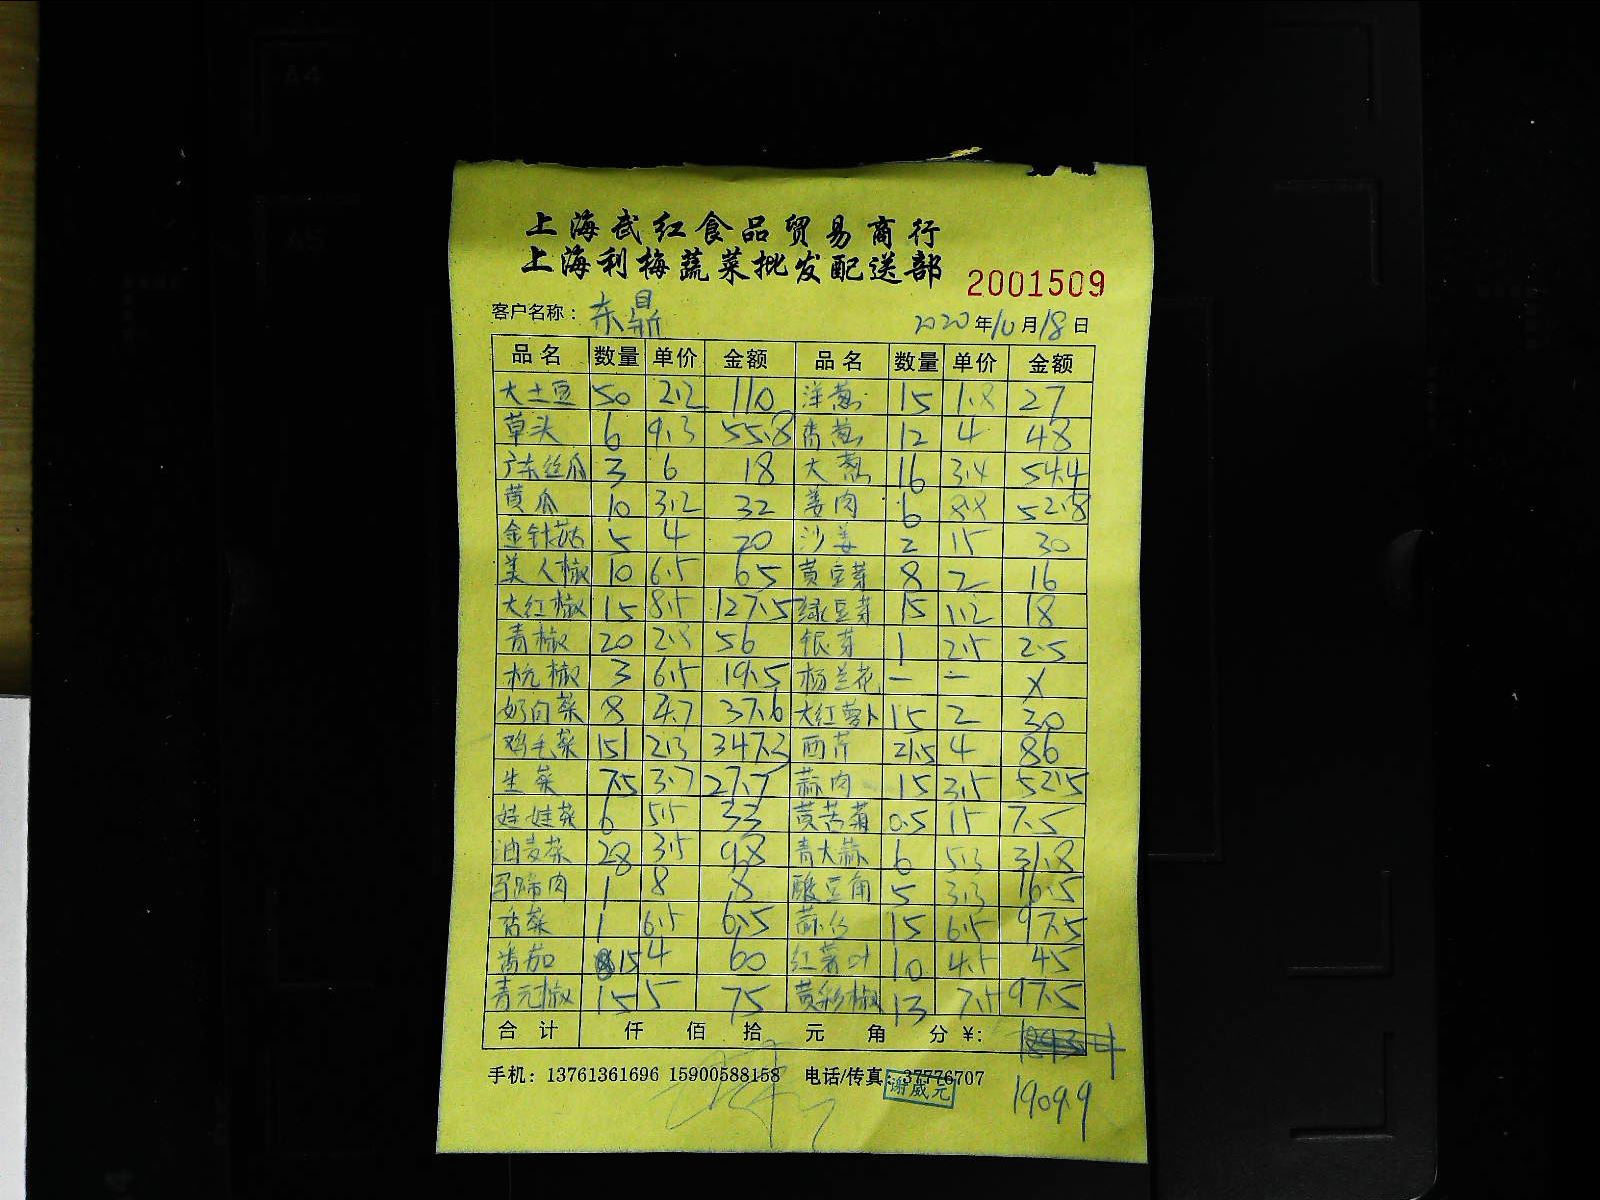 A4
A5
上海武红食品贸易商行
上海利梅蔬菜批发配送部
2001509
客户名称： 东鼎 2020年10月18日
品名 数量 单价 金额 品名 数量 单价 金额
大土豆 50 2.2 110 洋葱 15 1.8 27
草头 6 9.3 55.8 香葱 12 4 48
广东丝瓜 3 6 18 大葱 16 3.4 54.4
黄瓜 10 3.2 32 姜肉 6 8.8 52.8
金针菇 5 4 20 沙姜 2 15 30
美人椒 10 6.5 65 黄豆芽 8 2 16
大红椒 15 8.5 127.5 绿豆芽 15 1.2 18
青椒 20 2.8 56 银芽 1 2.5 2.5
杭椒 3 6.5 19.5 杨兰花 — — X
奶白菜 8 4.7 37.6 大红萝卜 15 2 30
鸡毛菜 151 2.3 347.3 西芹 21.5 4 86
生菜 7.5 3.7 27.7 蒜肉 15 3.5 52.5
娃娃菜 6 5.5 33 黄苦菊 0.5 15 7.5
油麦菜 28 3.5 98 青大蒜 6 5.3 31.8
马蹄肉 1 8 8 酸豆角 5 3.3 16.5
香菜 1 6.5 6.5 蒜仔 15 6.5 97.5
番茄 15 4 60 红薯叶 10 4.5 45
青元椒 15 5 75 黄彩椒 13 7.5 97.5
合计 仟 佰 拾 元 角 分 ¥:
手机：13761361696 15900588158 电话/传真：37776707
谢威元
1909.9